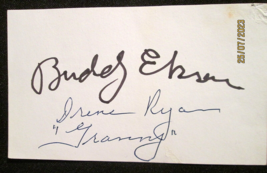 Buddy Ebsen
Irene Ryan
"Granny"
25/07/2023